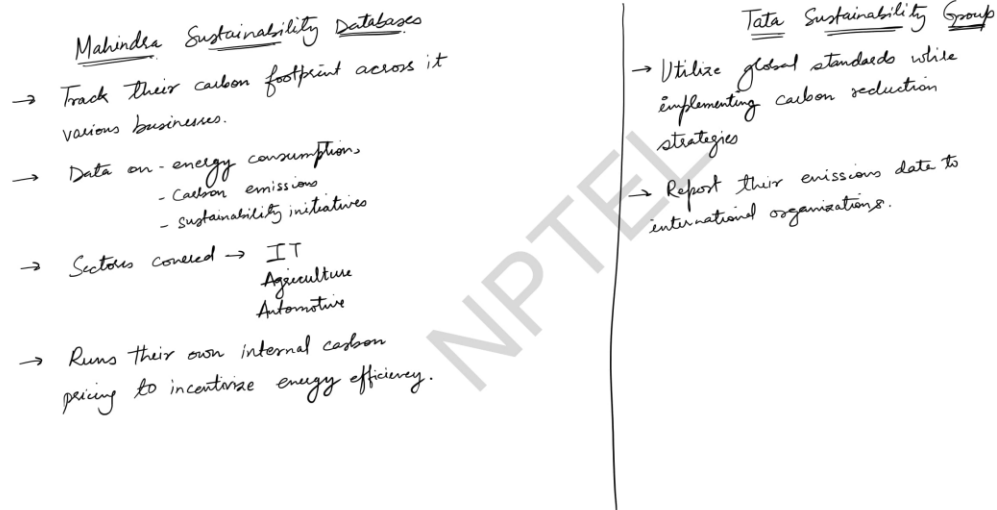 Mahindra Sustainability Databases
→ Track their carbon footprint across it
various businesses.
→ Data on - energy consumption,
- Carbon emissions
- sustainability initiatives
→ Sectors covered → IT
Agriculture
Automotive
→ Runs their own internal carbon
pricing to incentivize energy efficiency.
Tata Sustainability Group
→ Utilize global standards while
implementing carbon reduction
strategies
→ Report their emissions date to
international organizations.
NPTEL